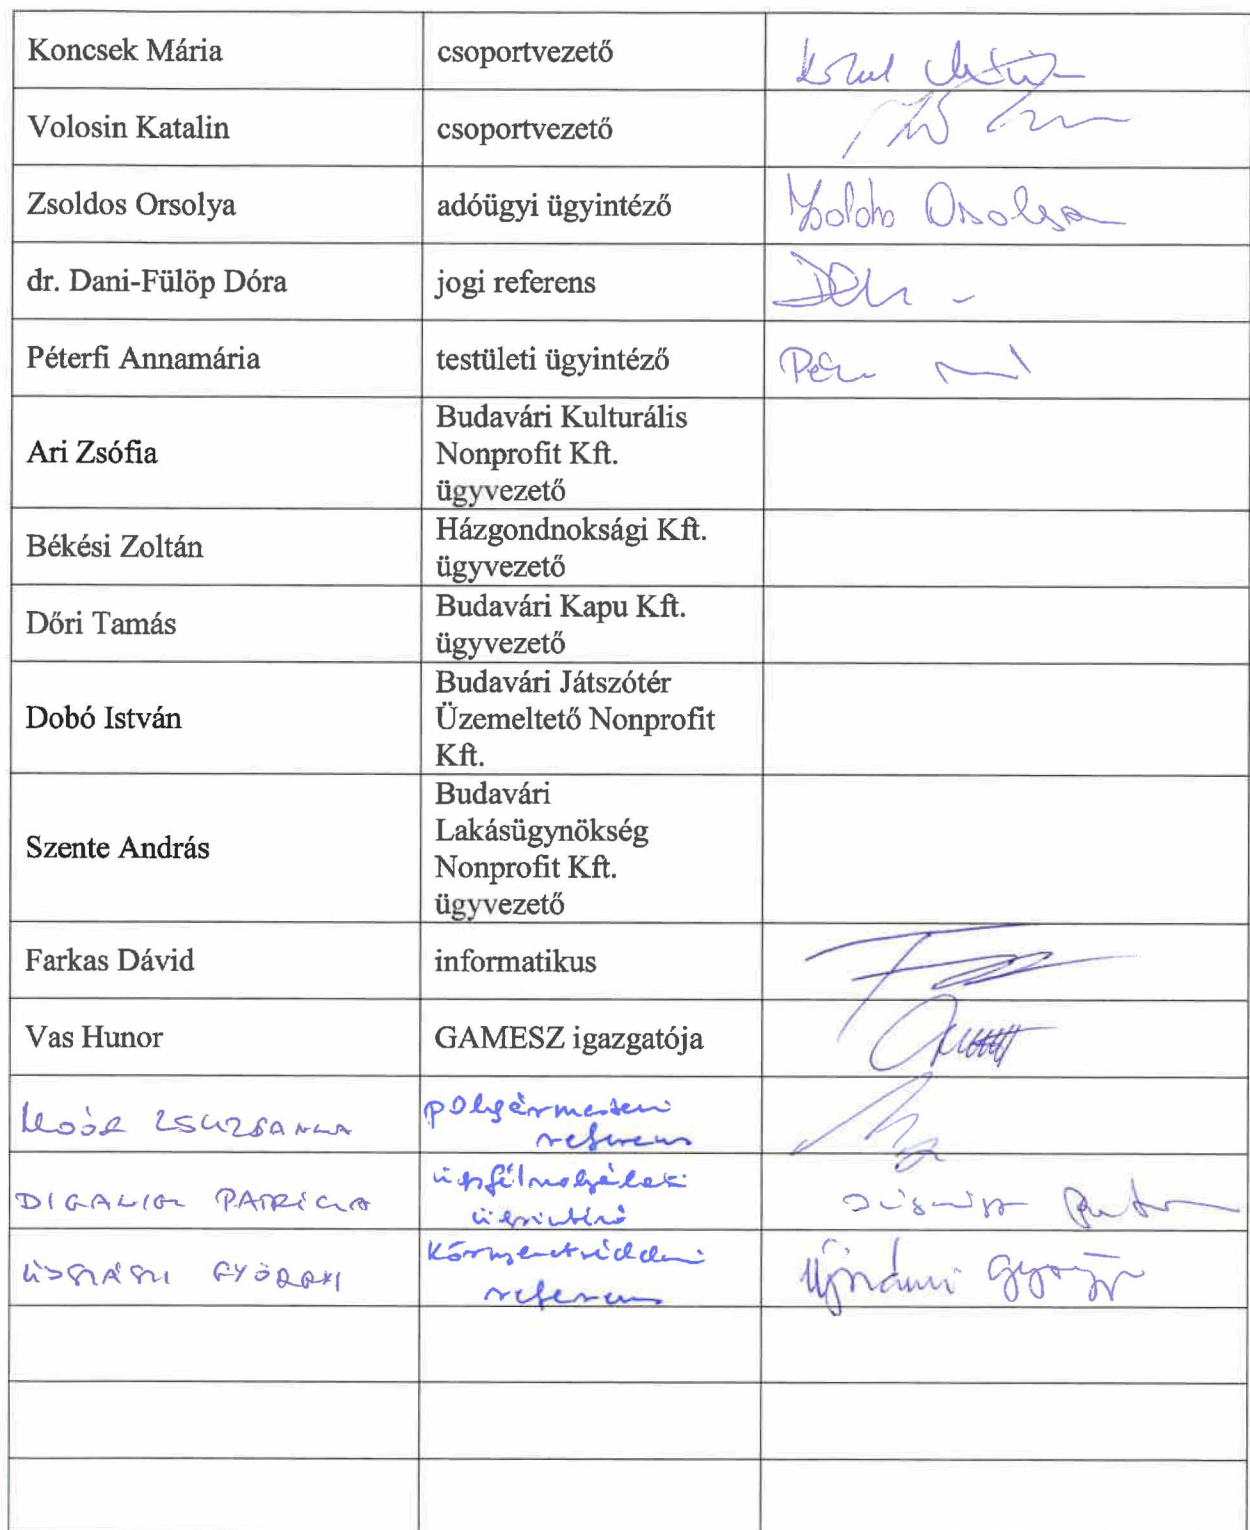 Koncsek Mária csoportvezető
Volosin Katalin csoportvezető
Zsoldos Orsolya adóügyi ügyintéző Zsoldos Orsolya
dr. Dani-Fülöp Dóra jogi referens
Péterfi Annamária testületi ügyintéző
Ari Zsófia Budavári Kulturális
Nonprofit Kft.
ügyvezető
Békési Zoltán Házgondnoksági Kft.
ügyvezető
Dőri Tamás Budavári Kapu Kft.
ügyvezető
Dobó István Budavári Játszótér
Üzemeltető Nonprofit
Kft.
Szente András Budavári
Lakásügynökség
Nonprofit Kft.
ügyvezető
Farkas Dávid informatikus
Vas Hunor GAMESZ igazgatója
ZSUZSANNA polgármesteri
referens
PATRÍCIA
ügyintéző
környezetvédelmi
referens